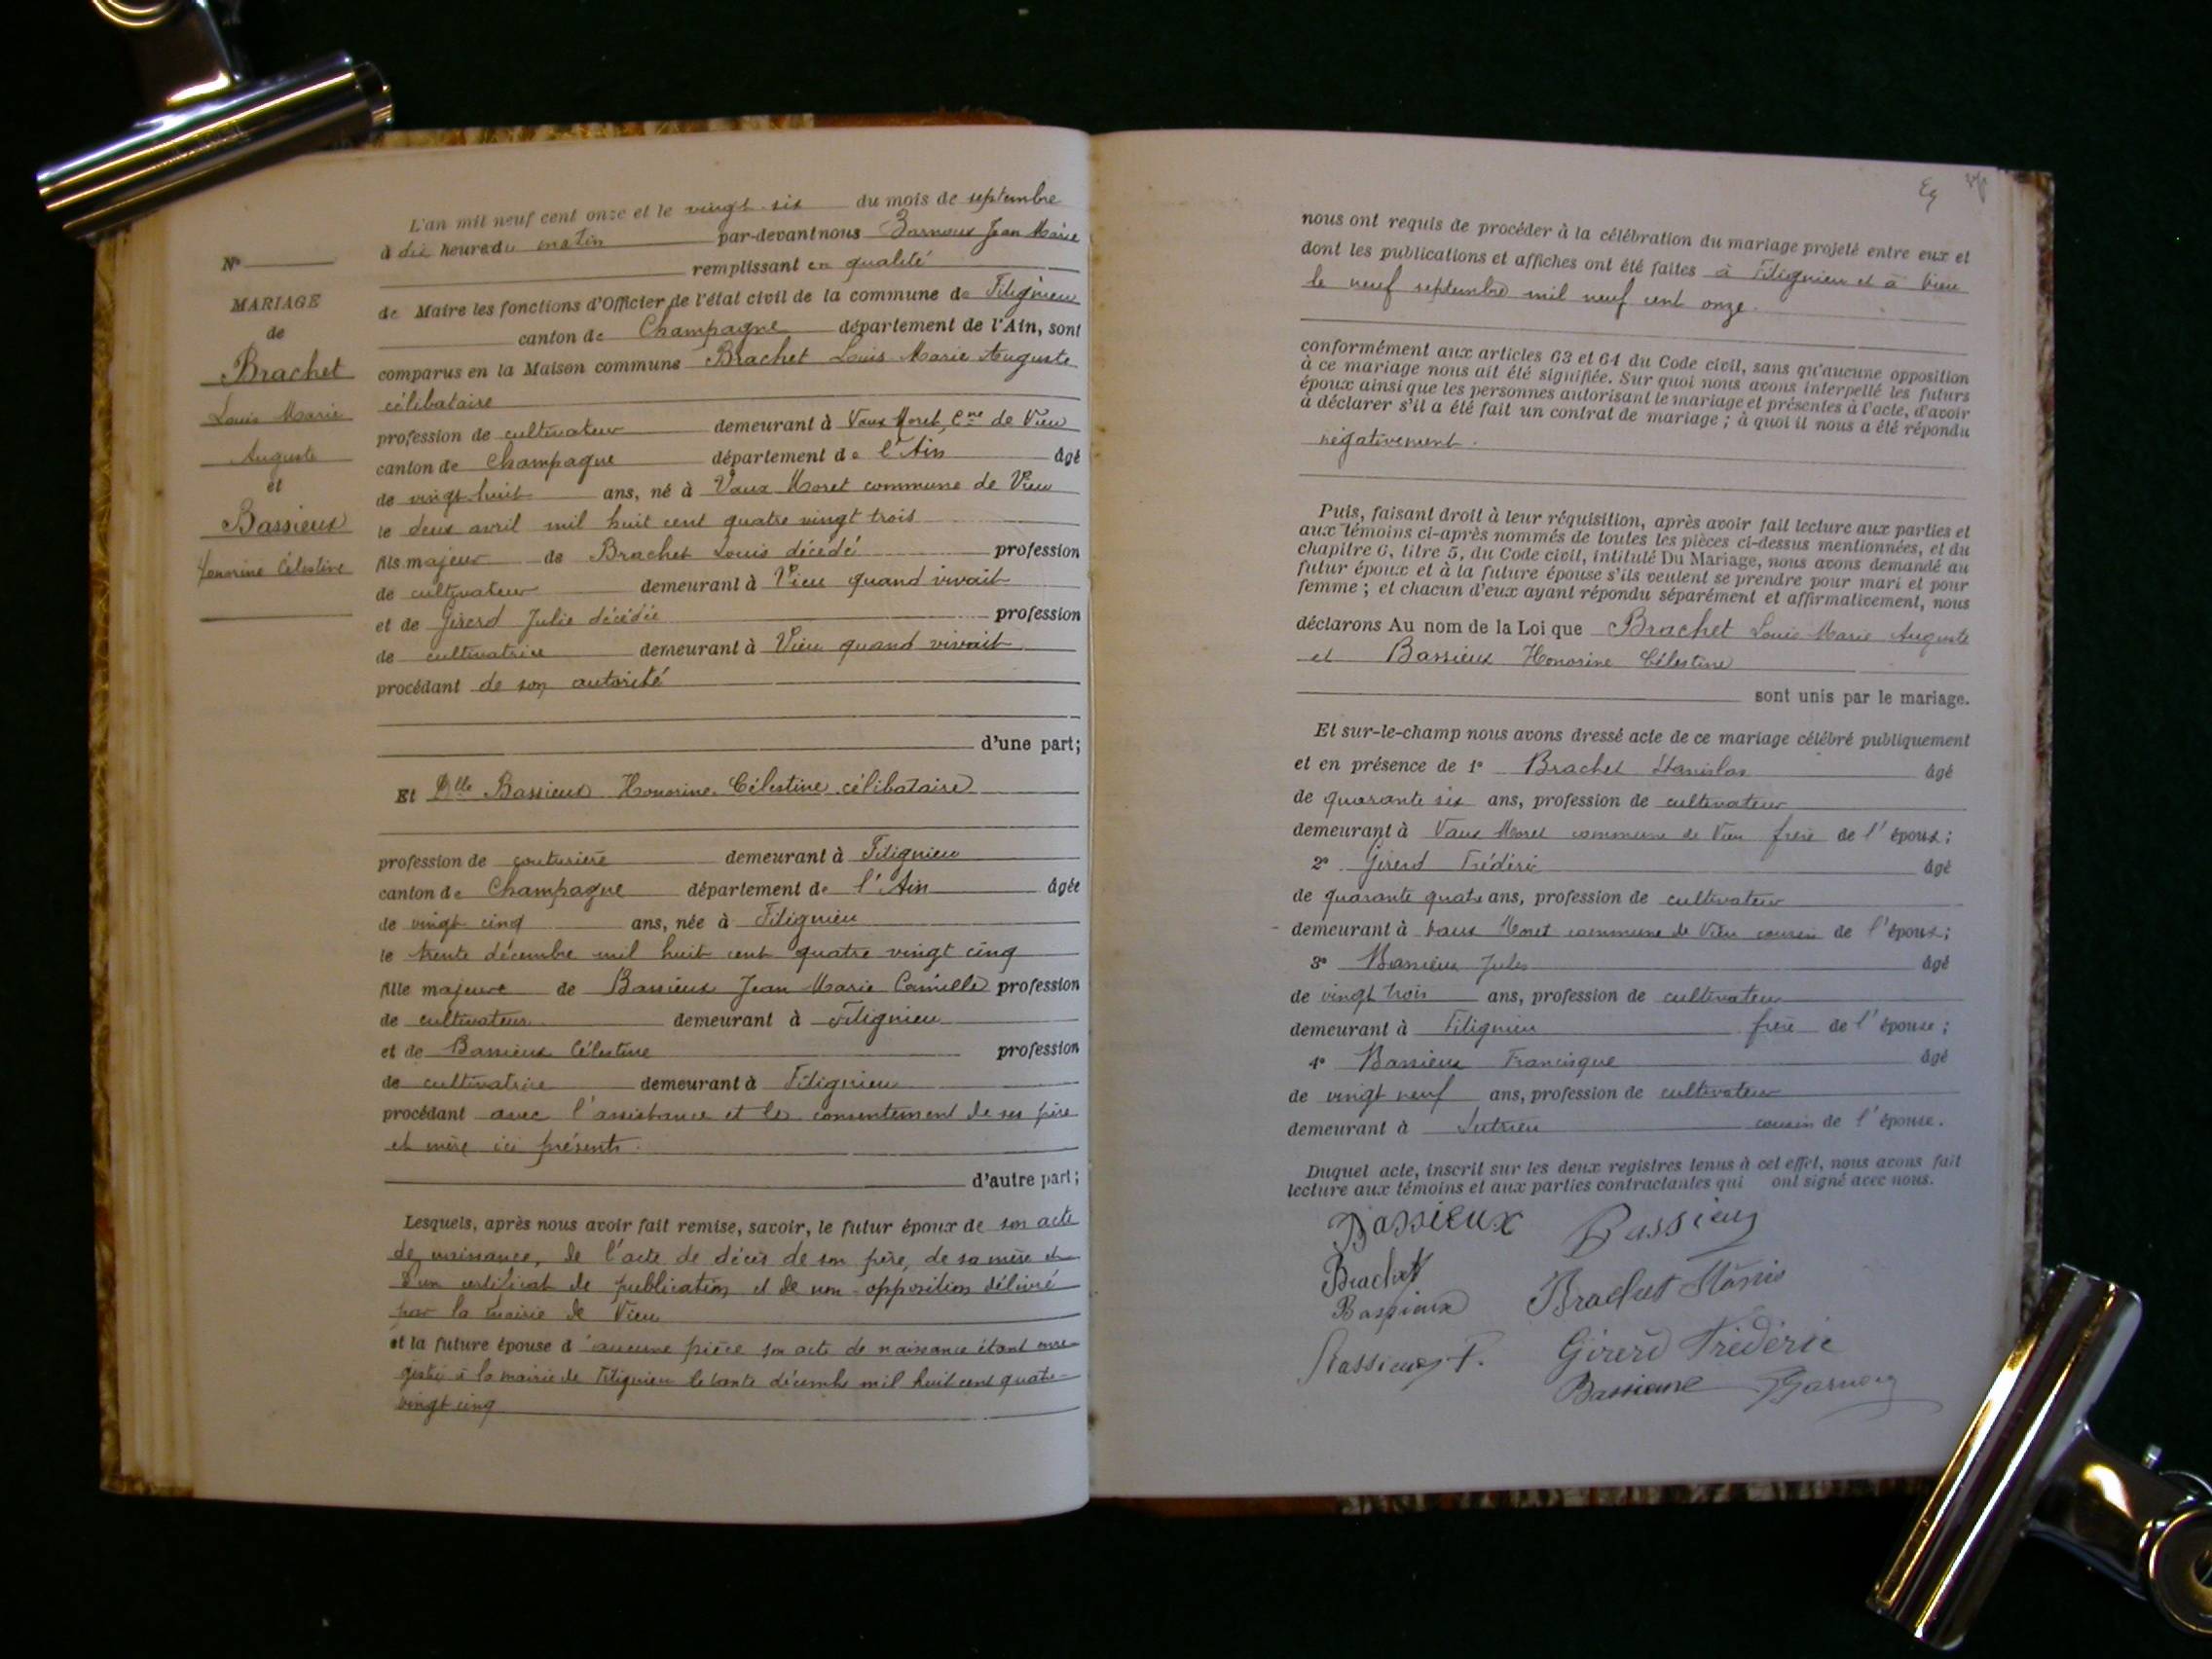 L'an mil neuf cent onze et le vingt six du mois de septembre
à dix heure du matin par-devant nous Barnoux Jean Marie
remplissant en qualité
de Maire les fonctions d'Officier de l'état civil de la commune de Fitignieu
canton de Champagne département de l'Ain, sont
comparus en la Maison commune Brachet Louis Marie Auguste
célibataire
profession de cultivateur demeurant à Vaux Moret, Cne de Vieu
canton de Champagne département de l'Ain âgé
de vingt huit ans, né à Vaux Moret commune de Vieu
le deux avril mil huit cent quatre vingt trois
fils majeur de Brachet Louis décédé profession
de cultivateur demeurant à Vieu quand vivait
et de Girerd Julie décédée profession
de cultivatrice demeurant à Vieu quand vivait
procédant de son autorité
d'une part;
N°
MARIAGE
de
Brachet
Louis Marie
Auguste
et
Bassieux
Honorine Célestine
Et Dlle Bassieux Honorine Célestine célibataire
profession de couturière demeurant à Fitignieu
canton de Champagne département de l'Ain âgée
de vingt cinq ans, née à Fitignieu
le trente décembre mil huit cent quatre vingt cinq
fille majeure de Bassieux Jean Marie Camille profession
de cultivateur demeurant à Fitignieu
et de Bassieux Célestine profession
de cultivatrice demeurant à Fitignieu
procédant avec l'assistance et le consentement de ses père
et mère ici présents.
d'autre part;
Lesquels, après nous avoir fait remise, savoir, le futur époux de son acte
de naissance, de l'acte de décès de son père, de sa mère et
d'un certificat de publication et de non-opposition délivré
par la mairie de Vieu
et la future épouse d'aucune pièce son acte de naissance étant enre-
gistré à la mairie de Fitignieu le trente décembre mil huit cent quatre-
vingt cinq
nous ont requis de procéder à la célébration du mariage projeté entre eux et
dont les publications et affiches ont été faites à Fitignieu et à Vieu
le neuf septembre mil neuf cent onze.
conformément aux articles 63 et 64 du Code civil, sans qu'aucune opposition
à ce mariage nous ait été signifiée. Sur quoi nous avons interpellé les futurs
époux ainsi que les personnes autorisant le mariage et présentes à l'acte, d'avoir
à déclarer s'il a été fait un contrat de mariage; à quoi il nous a été répondu
négativement.
Puis, faisant droit à leur réquisition, après avoir fait lecture aux parties et
aux témoins ci-après nommés de toutes les pièces ci-dessus mentionnées, et du
chapitre 6, titre 5, du Code civil, intitulé Du Mariage, nous avons demandé au
futur époux et à la future épouse s'ils veulent se prendre pour mari et pour
femme; et chacun d'eux ayant répondu séparément et affirmativement, nous
déclarons Au nom de la Loi que Brachet Louis Marie Auguste
et Bassieux Honorine Célestine
sont unis par le mariage.
Et sur-le-champ nous avons dressé acte de ce mariage célébré publiquement
et en présence de 1° Brachet Stanislas âgé
de quarante six ans, profession de cultivateur
demeurant à Vaux Moret commune de Vieu frère de l'époux;
2° Girerd Frédéric âgé
de quarante quatre ans, profession de cultivateur
demeurant à Vaux Moret commune de Vieu cousin de l'époux;
3° Bassieux Jules âgé
de vingt trois ans, profession de cultivateur
demeurant à Fitignieu frère de l'épouse;
4° Bassieux Francisque âgé
de vingt neuf ans, profession de cultivateur
demeurant à Sutrieu cousin de l'épouse.
Duquel acte, inscrit sur les deux registres tenus à cet effet, nous avons fait
lecture aux témoins et aux parties contractantes qui ont signé avec nous.
Bassieux Bassieux
Brachet
Bassieux Brachet
Bassieux F. Girerd Frédéric
Barnoux